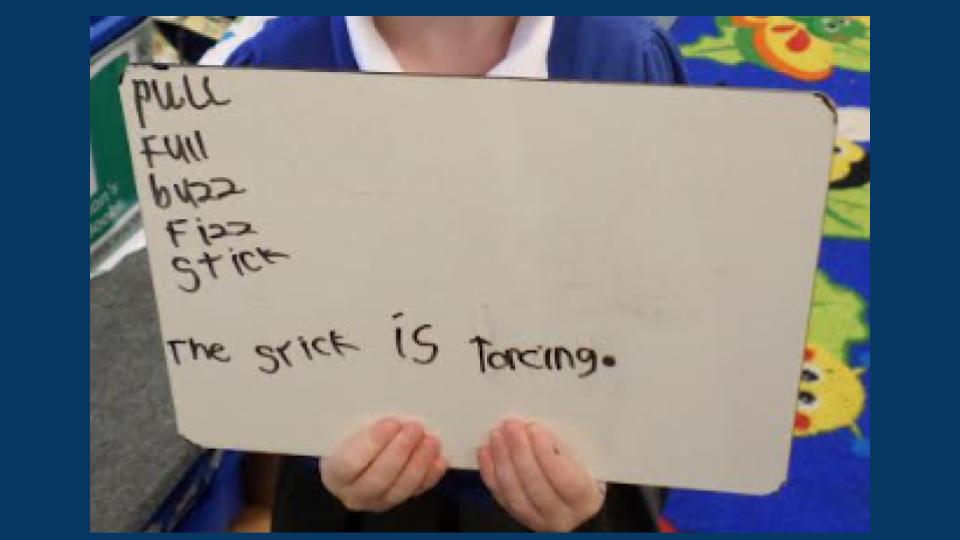 pull
Full
buzz
Fizz
stick
The stick is Torcing.